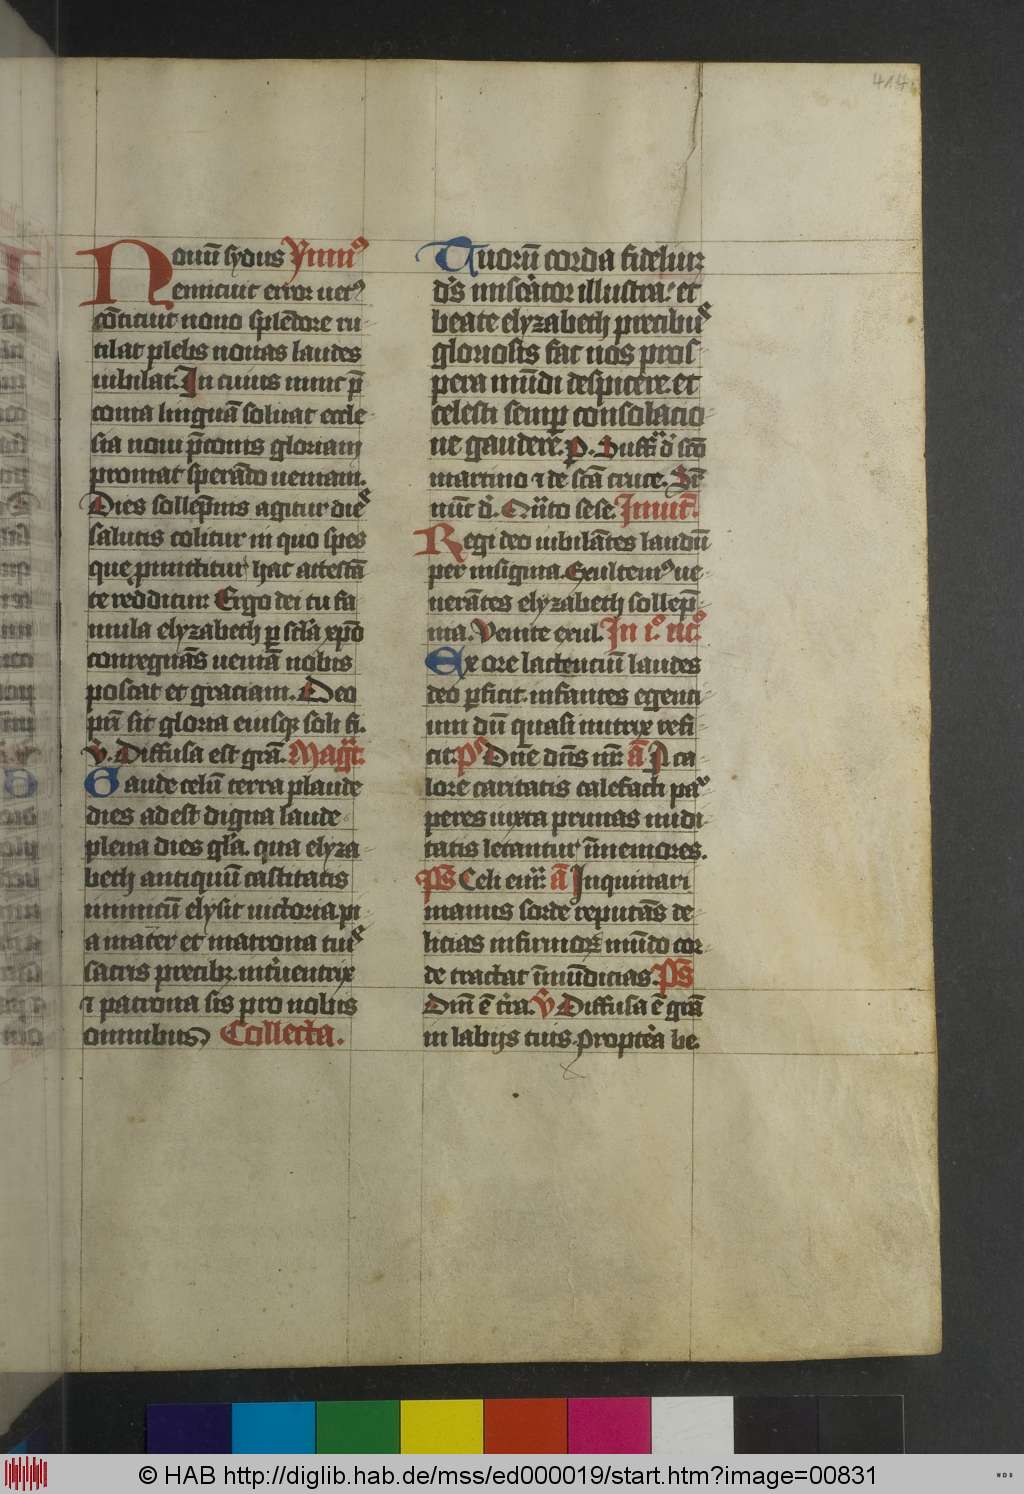 414
Nouū sydus Ymnꝰ
emicuit error uetꝰ
cōticuit nouo splēdore ru
tilat plebs nouas laudes
iubilat. In cuius nunc p̄
conia linguā soluat eccle
sia noui p̄conis gloriam
promat sperādo ueniam.
Dies sollēpnis agitur dieˢ
salutis colitur in quo spes
que promittitur hac attestā
te redditur Ergo dei tu fa
mula elyzabeth ꝑ sclā xp̄o
conregnās ueniā nobis
poscat et graciam. Deo
pr̄i sit gloria eiusqꝫ soli fi.
v. Diffusa est grā. Magͭ.
Gaude celū terra plaude
dies adest digna laude
plena dies glā. qua elyza
beth antiquū castitatis
inimicū elysit uictoria. pi
a mater et matrona tuiˢ
sacris precibꝫ int̄uentrix
⁊ patrona sis pro nobis
omnibus Collecta.
Tuorū corda fideliuꝫ
ds̄ mis̄ator illustra. et
beate elyzabeth precibuˢ
gloriosis fac nos pros
pera mūdi despicere. et
celesti semꝑ consolacio
ne gaudere. P. Suffͣ d̄ sc̄o
martino ⁊ de sc̄a cruce. Sr̄
nūc d̄. Quīto sese. Inuit.
Regi deo iubilātes laudū
per insignia. Exultemꝰ ue
nerātes elyzabeth sollēp
nia. Venite exul. In .i.º nc̄º
Ex ore lactenciū laudes
deo ꝑficit. infantes egenti
um dū quasi nutrix refi
cit. pˢ Dn̄e dn̄s nr̄. a̅ A ca
lore caritatis calefacti paˢ
peres iuxta prunas nudi
tatis letantur īmemores.
p̄s Celi enr̄. a̅ Inquinari
manus sorde reputās de
licias infirmoꝝ mūdo cor
de tractat īmūdicias. P̄s
Dn̄i ē t̄ra. v̄ Diffusa ē grā
in labijs tuis. propt̄ea be.
© HAB http://diglib.hab.de/mss/ed000019/start.htm?image=00831